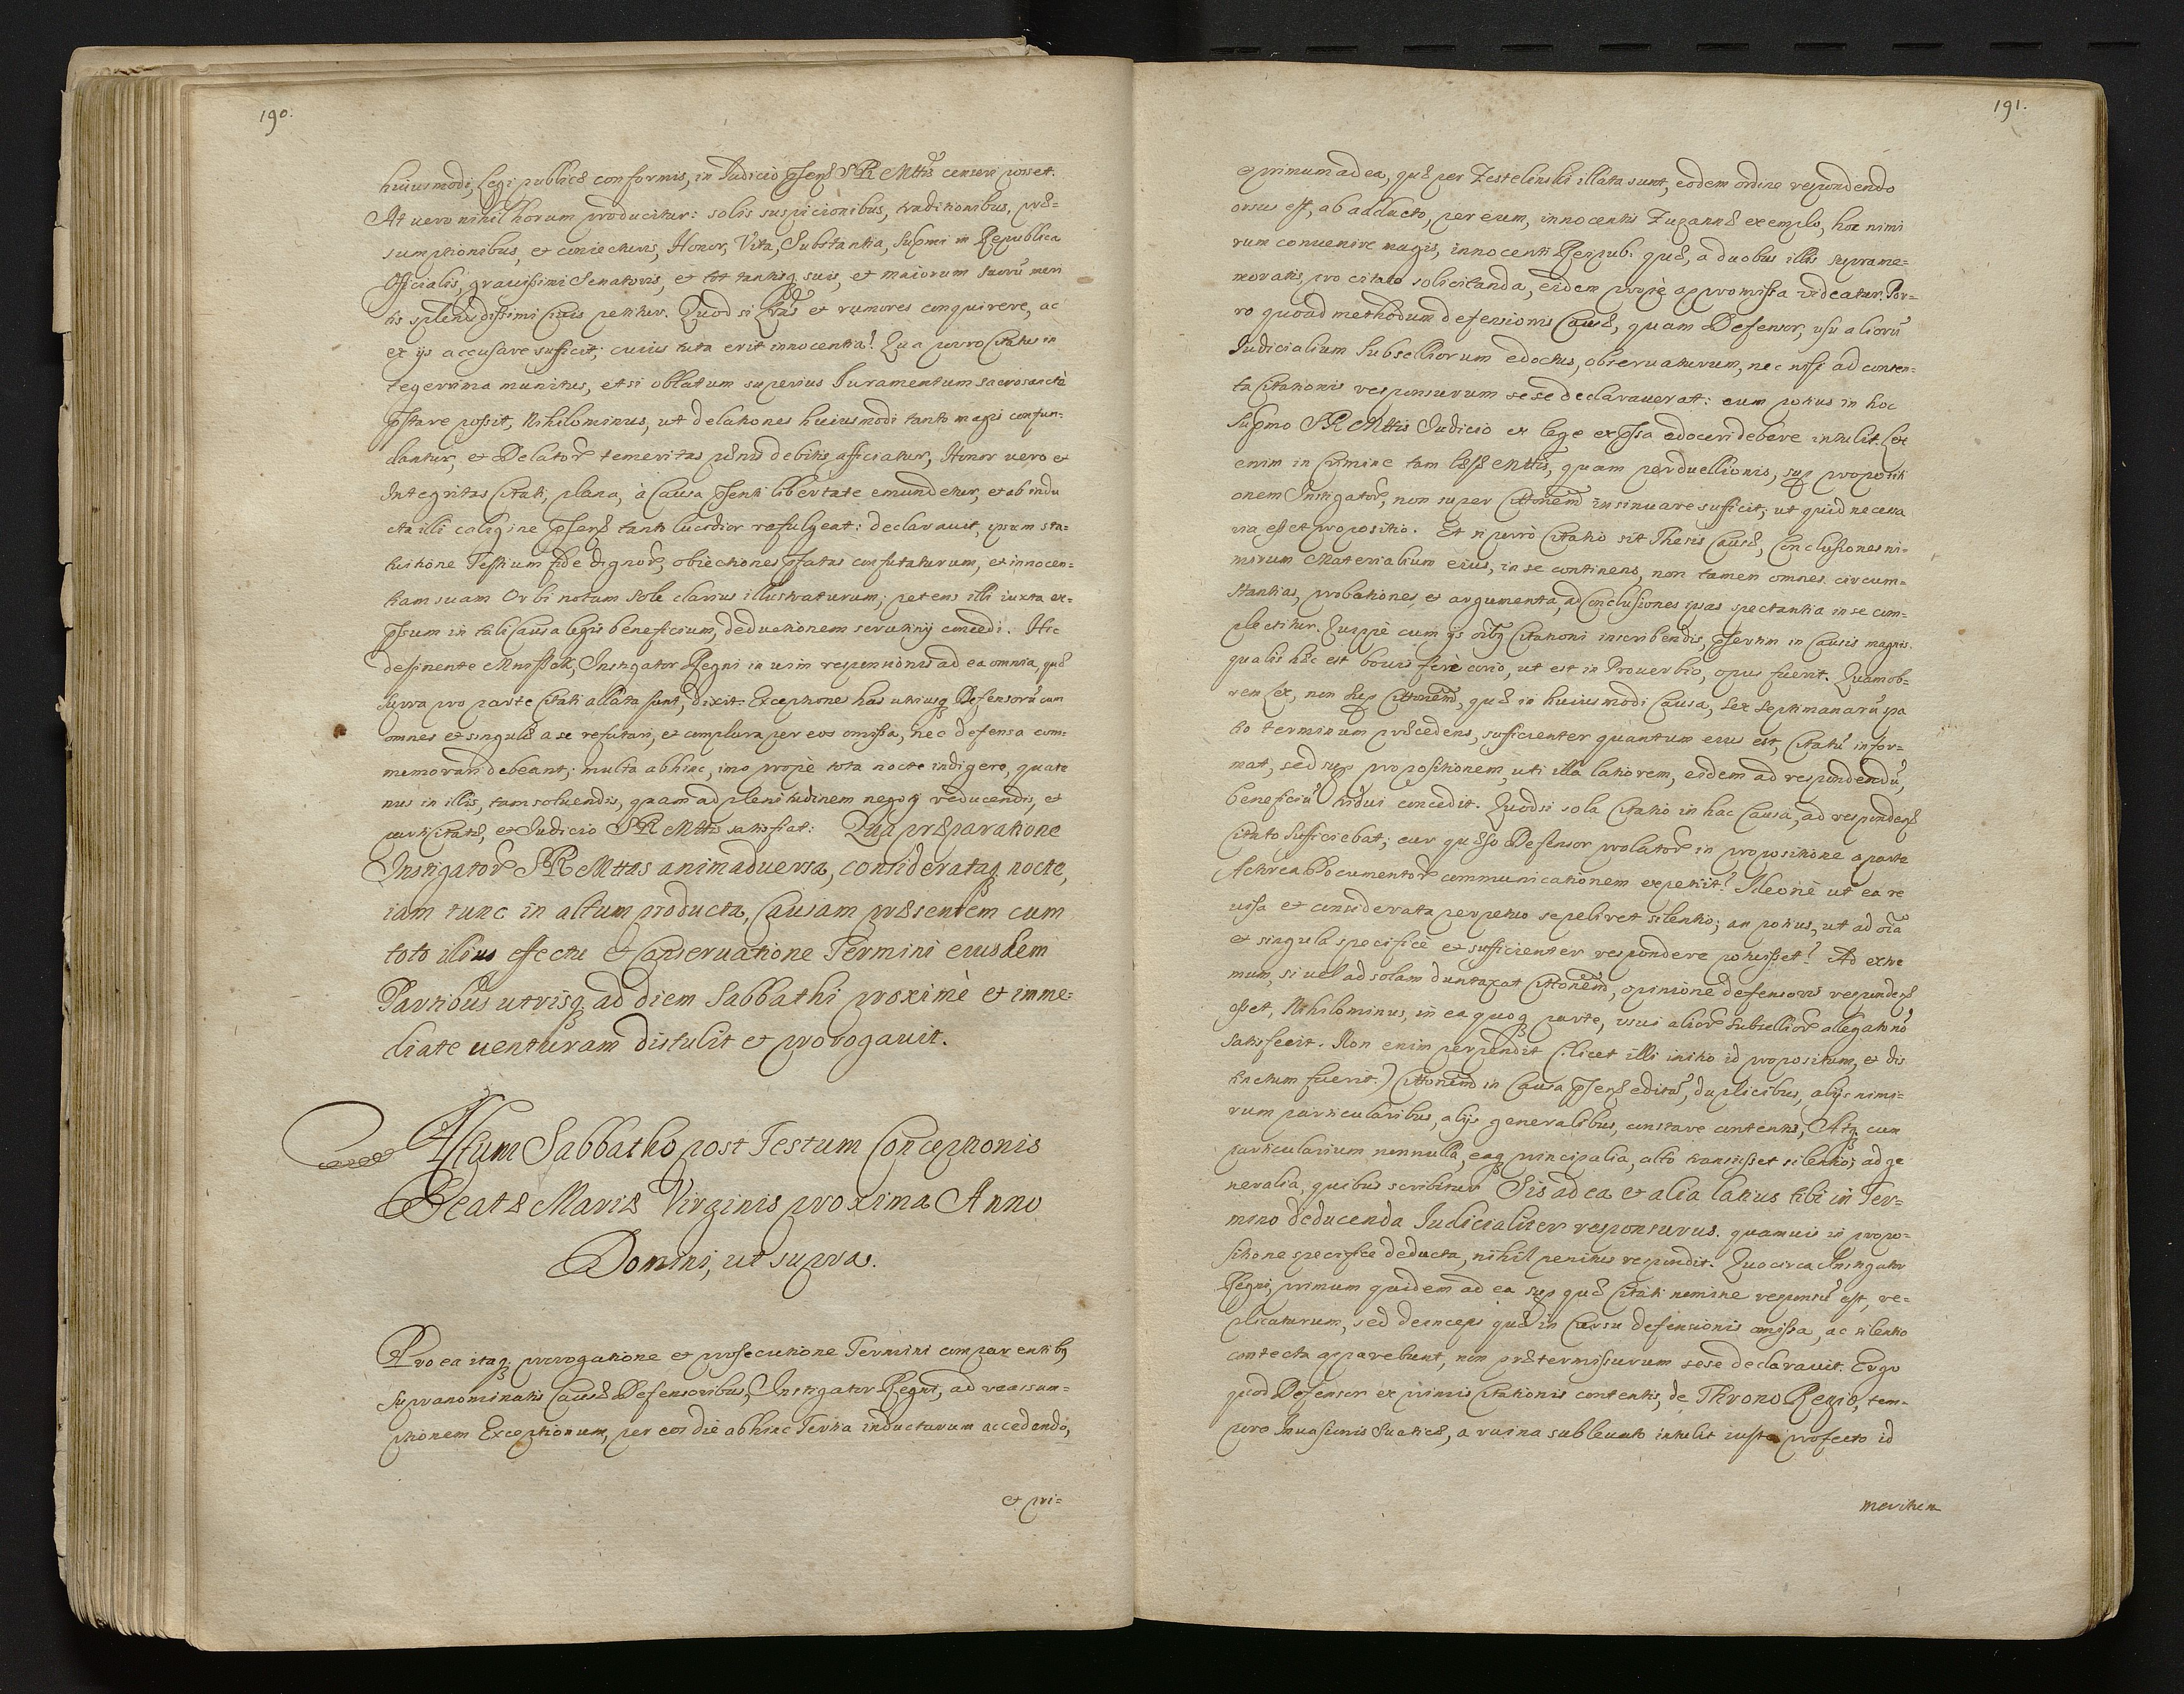 190.
huiusmodi, Legi publicæ conformis, in Iudicio pñti S R Mttis censeri posset.
At uero nihil horum producitur: solis suspicionibus, traditionibus, præ=
sumptionibus, et coniecturis, Honor, Vita, Substantia, Supmi in Republica
Officialis, grauissimi Senatoris, et tot tantisq suis, et maiorum suorũ meri
tis splendidissimi Ciuis petitur. Quod si Lras et rumores conquirere, ac
ex ijs accusare sufficit; cuius tuta erit innocentia? Qua porro Citatus in
tegerrima munitus, etsi oblatum superius Iuramentum sacrosanctè
pstare possit, Nihilominus, ut delationes huiusmodi tanto magis confun=
dantur, et Delator temeritas pænis debitis afficiatur, Honor uero et
Integritas Citati, plena, à Causa psenti libertate emundetur, et ab indu
cta illi caligine psens tanto lucidior refulgeat: declarauit, ipsum sta=
tuitione Testium fide dignor, obiectiones pfatas confutaturum, et innocen=
tiam suam Orbi notam Sole clarius illustraturum; petens illi iuxta ex=
psum in tali Causa legis beneficium, deductionem scrutinij concedi. Hic
desinente Instigator Regni in uim responsionis ad ea omnia, quæ
supra pro parte Citati allata sunt, dixit. Exceptiones has utriusq Defensorũ cum
omnes et singulæ a se refutari, et complura per eos omissa, nec defensa com=
memorari debeant; multa abhinc, imo propè tota nocte indigere, quate
nus in illis, tam soluendis, quam ad plenitudinem negotij reducendis, et
parti Citatæ, et Iudicio S R Mttis satisfiat: Qua præparatione
Instigator S R Mttas animaduersa, consideratãq nocte,
iam tunc in altum producta, Causam præsentem cum
toto illius effectu et Conseruatione Termini eiusdem
Partibus utrisq. ad diem Sabbathi proximè et imme=
diate uenturam distulit et prorogauit.
Actum Sabbatho post Festum Conceptionis
Beatæ Mariæ Virginis proxima Anno
Domini, ut supra.
Pro ea itaq. prorogatione et prosecutione Termini comparentibq
supranominatis Causæ Defensoribus, Instigator Regni, ad reassum=
ptionem Exceptionum, per eos die abhinc Tertia inductarum accedendo,
et pri=
191.
et primum ad ea, quæ per Zestelinski illata sunt, eodem ordine respondendo
orsus est, ab adducto, per eum, innocentis Zuzannæ exemplo, hoc nimi
rum conuenire magis, innocenti Reipub: quæ, a duobus illis suprame=
moratis, pro citato solicitanda, eidem propè appromissa uideatur. Por=
ro quoad methodum defensionis Causæ, quam Defensor, usu aliorũ
Iudicialium Subselliorum edoctus, obseruaturum, nec nisi ad conten=
ta Citationis responsurum sese declarauerat: eum potius in hoc
Supmo S R Mttis Iudicio ex lege expssa edoceri debere intulit. Lex
enim in Crimine tam læsæ Mttis, quam perduellionis, sup propositi
onem Instigator, non super Cittonem insinuare sufficit; ut quid necessa
ria esset propositio. Et si porrò Citatio sit Thesis Causæ, Conclusiones ni=
mirum Materialium eius, in se continens, non tamen omnes circum=
stantias, probationes, et argumenta, ad Conclusiones ipsas spectantia in se com=
plectitur. Quippe cum ijs oibq Citationi inscribendis, psertim in Causis magnis.
qualis hæc est bouis ferè corio, ut est in Prouerbio, opus fuerit. Quamob=
rem Lex, non sup Cittonem, quæ in huiusmodi Causa, sex septimanarũ spa
tio terminum præcedens, sufficienter quantum eius est, Citatũ infor=
mat, sed sup propositionem, uti illa latiorem, eidem ad respondendũ,
beneficiũ tridui concedit. Quodsi sola Citatio in hac Causa, ad respondenð
Citato Sufficiebat; cur quæso Defensor prolator in propositione a parte
Actorea Documentor communicationem expetiit? Ideone ut ea re
uisa et considerata perpetuo sepeliret silentio; an potius, ut ad oĩa
et singula specificè et sufficienter respondere potuisset? Ad extre
mum, si uel ad solam duntaxat Cittonem, opinione defensoris respondenð
esset, Nihilominus, in ea quoq parte, usui alior Subsellior allegato nõ
satisfecit. Non enim perpendit (licet illi initio id propositum, et dis
tinctum fuerit.) Cittonem in Causa psenti editã, duplicibus, alijs nimi=
rum particularibus, alijs generalibus, constare contentis, Atq. cum
particularium nonnulla, eaq principalia, alto transisset silentio; ad ge
neralia, quibus scribitur Sis ad ea et alia latius tibi in Ter=
mino deducenda Iudicialiter responsurus. quamuis in propo=
sitione specificè deducta, nihil penitus respondit. Quocirca Instigator
Regni, primum quidem ad ea sup quæ Citati nomine responsũ est, re=
plicaturum, sed deinceps quæ in Cursu defensionis omissa, ac silentio
contecta apparebunt, non prætermissurum sese declarauit. Ergo
quod Defensor ex primis Citationis contentis, de Throno Regio, tem=
pore Inuasionis Sueticæ, a ruina subleuato intulit iusta profecto id
meritum